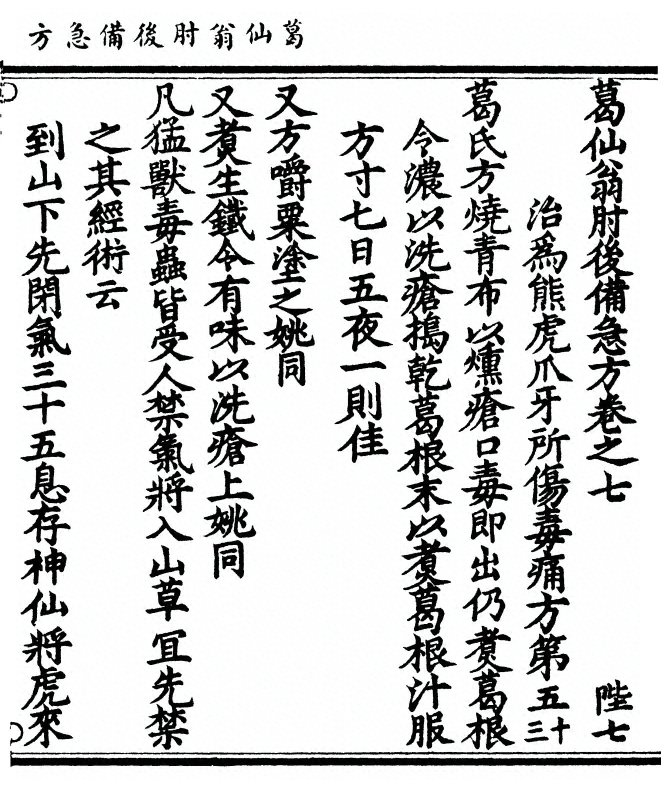 葛仙翁肘後備急方
葛仙翁肘後備急方卷之七　陛七
治為熊虎爪牙所傷毒痛方第五十三
葛氏方燒青布以燻瘡口毒即出仍煑葛根
令濃以洗瘡搗乾葛根末以煑葛根汁服
方寸七日五夜一則佳
又方嚼粟塗之姚同
又煑生鐵令有味以洗瘡上姚同
凡猛獸毒蟲皆受人禁氣將入山草冝先禁
之其經術云
到山下先閉氣三十五息存神仙將虎來